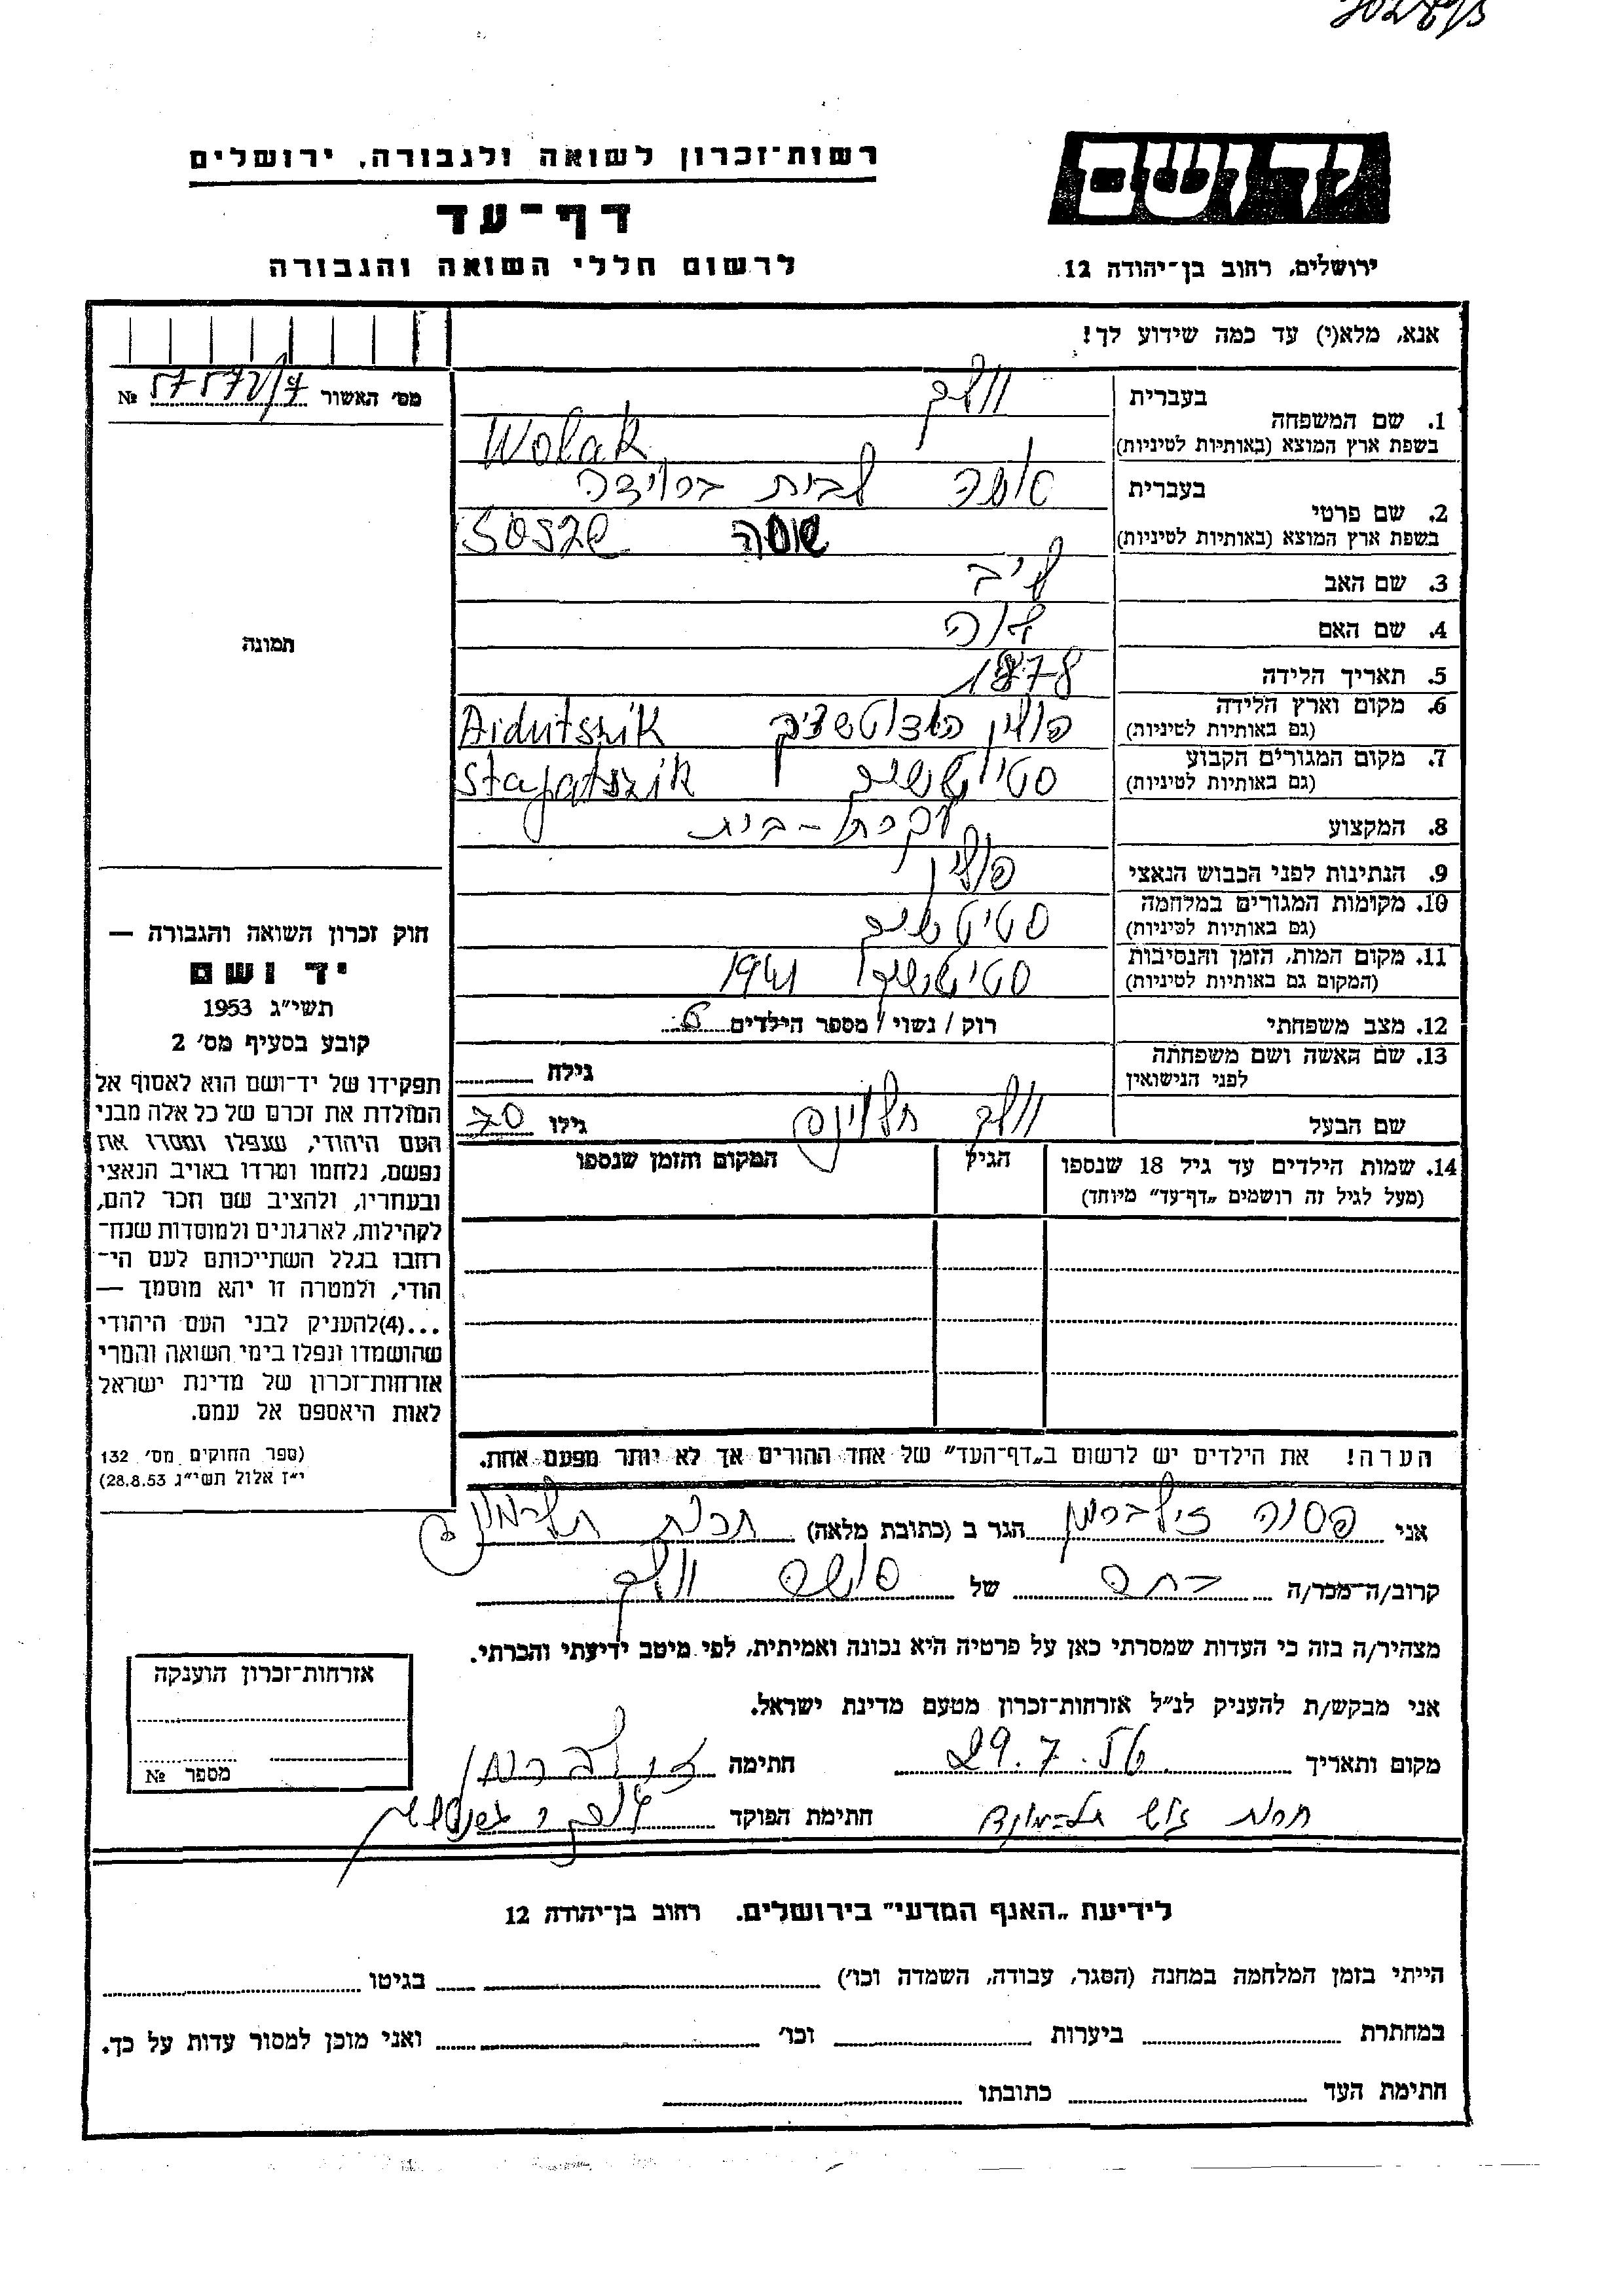 יד ושם
רשות־זכרון לשואה ולגבורה, ירושלים
דף־עד
ירושלים, רחוב בן־יהודה 12
לרשום חללי השואה והגבורה
אנא, מלא(י) עד כמה שידוע לך!
מס׳ האשור №
1. שם המשפחה
בעברית וולק
בשפת ארץ המוצא (באותיות לטיניות) Wolak
2. שם פרטי
בעברית סושה לבית
בשפת ארץ המוצא (באותיות לטיניות) שוסה
3. שם האב ליב
4. שם האם
5. תאריך הלידה 1878
6. מקום וארץ הלידה
(גם באותיות לטיניות) פולין Aidutszik
7. מקום המגורים הקבוע
(גם באותיות לטיניות) Stajatszik
8. המקצוע עקרת-בית
9. הנתינות לפני הכבוש הנאצי פולין
10. מקומות המגורים במלחמה
(גם באותיות לטיניות)
11. מקום המות, הזמן והנסיבות
(המקום גם באותיות לטיניות) 1941
12. מצב משפחתי רוק / נשוי / מספר הילדים 6
13. שם האשה ושם משפחתה
לפני הנישואין גילה
שם הבעל וולק גילו 70
14. שמות הילדים עד גיל 18 שנספו
(מעל לגיל זה רושמים „דף־עד״ מיוחד)
הגיל
המקום והזמן שנספו
הערה! את הילדים יש לרשום ב„דף־העד״ של אחד ההורים אך לא יותר מפעם אחת.
תמונה
חוק זכרון השואה והגבורה —
יד ושם
תשי״ג 1953
קובע בסעיף מס׳ 2
תפקידו של יד־ושם הוא לאסוף אל
המולדת את זכרם של כל אלה מבני
העם היהודי, שנפלו ומסרו את
נפשם, נלחמו ומרדו באויב הנאצי
ובעוזריו, ולהציב שם וזכר להם,
לקהילות, לארגונים ולמוסדות שנח־
רחבו בגלל השתייכותם לעם הי־
הודי, ולמטרה זו יהא מוסמך —
...(4)להעניק לבני העם היהודי
שהושמדו ונפלו בימי השואה והמרי
אזרחות־זכרון של מדינת ישראל
לאות היאספם אל עמם.
(ספר החוקים מס׳ 132
י״ז אלול תשי״ג 28.8.53)
אני פסיה זילברמן הגר ב (כתובת מלאה)
קרוב/ה־מכר/ה בתה של סושה וולק
מצהיר/ה בזה כי העדות שמסרתי כאן על פרטיה היא נכונה ואמיתית, לפי מיטב ידיעתי והכרתי.
אני מבקש/ת להעניק לנ״ל אזרחות־זכרון מטעם מדינת ישראל.
מקום ותאריך 29.7.56 חתימה זילברמן
חתימת הפוקד
אזרחות־זכרון הוענקה
מספר №
לידיעת „האגף המדעי״ בירושלים. רחוב בן־יהודה 12
הייתי בזמן המלחמה במחנה (הסגר, עבודה, השמדה וכו׳) בגיטו
במחתרת ביערות וכו׳ ואני מוכן למסור עדות על כך.
חתימת העד כתובתו